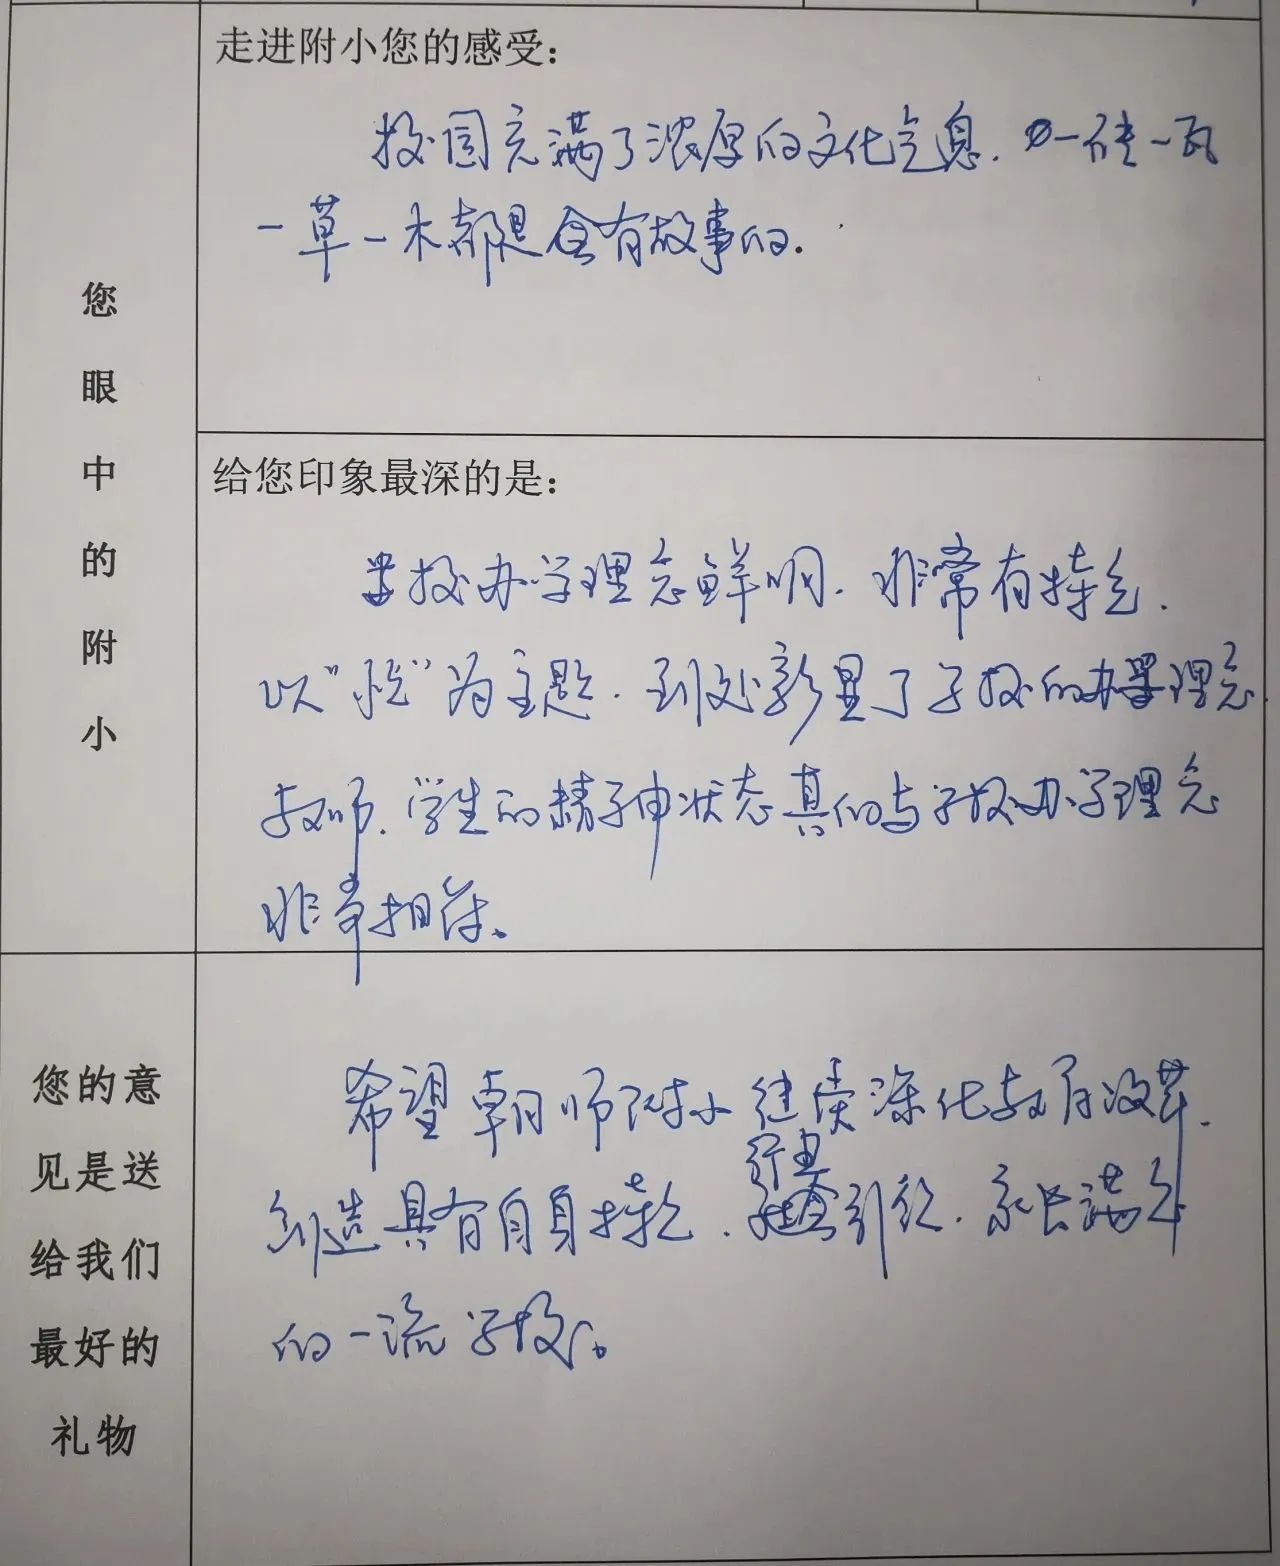 您眼中的附小
走进附小您的感受：
校园充满了浓厚的文化气息.一砖一瓦
一草一木都是含有故事的.
给您印象最深的是：
学校办学理念鲜明.非常有特色.
以"悦"为主题.到处彰显了学校的办学理念.
教师.学生的精神状态真的与学校办学理念
非常相符。
您的意
见是送
给我们
最好的
礼物
希望朝师附小继续深化教育改革.
行业
创造具有自身特色.引领.家长满意
的一流学校。